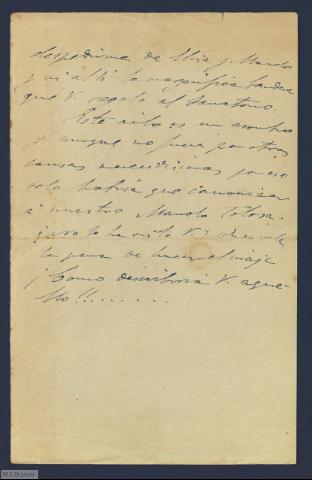 despedirme de Elisa y Manolo
y vi allí la magnífica bandera
que V. regaló al Sanatorio.
Este sólo es un asombro
y aunque no fuera por otras
causas merecidísimas por eso
solo habría que canonizar
á nuestro Manolo Tolosa.
¿No lo ha visto V.? Pues vale
la pena de hacer el viaje
¡Como describiría V. aque-
llo!!.......
M.C.D.2020